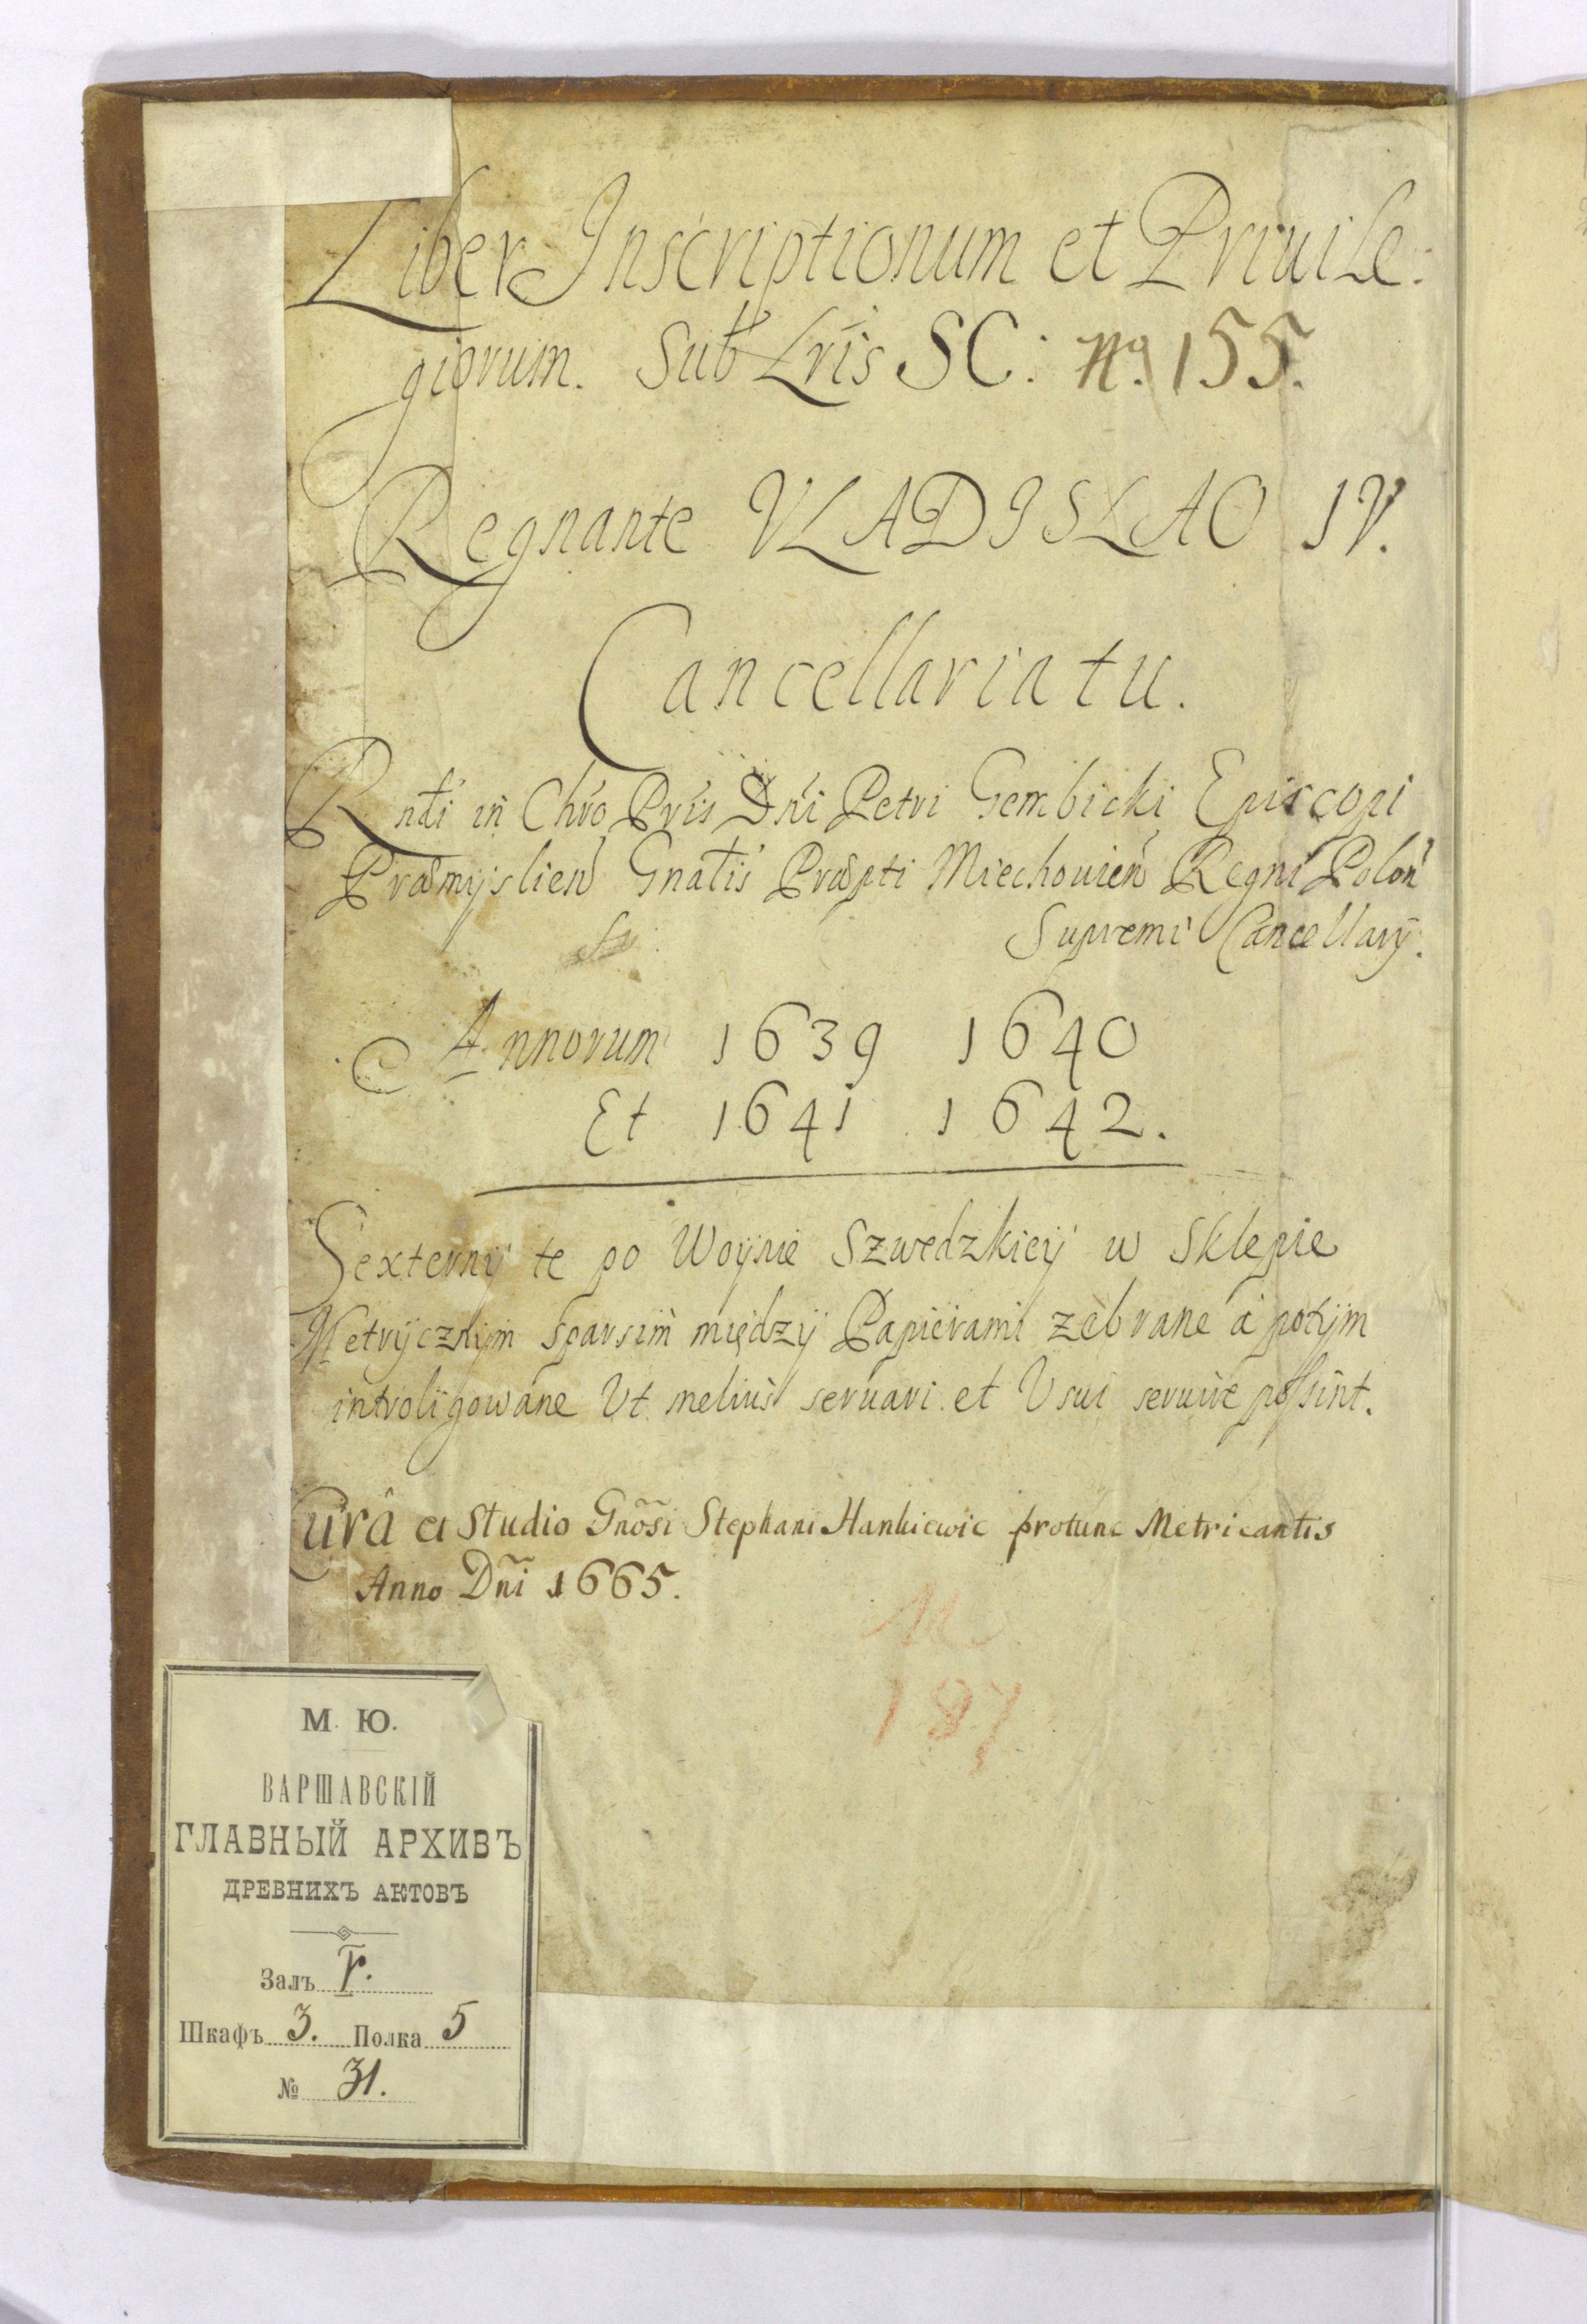 Liber Inscriptionum et Priuile:
giorum. Sub Lris SC: No. 155.
Regnante VLADISLAO IV.
Cancellariatu.
Rndi in Chro Pris Dni Petri Gembicki Episcopi
Præmyslien Gnalis Præpti Miechouien Regni Polon
Supremi Cancellarÿ.
Annorum 1639 1640
Et 1641 1642.
Sexterny te po Woynie Szwedzkiey w Sklepie
Metrycznym sparsim między Papierami zebrane a potym
introligowane Vt melius seruari et Vsui seruire possint.
Curâ et Studio Gnõsi Stephani Hankiewic protunc Metricantis
Anno Dñi 1665.
187
М. Ю.
ВАРШАВСКІЙ
ГЛАВНЫЙ АРХИВЪ
ДРЕВНИХЪ АКТОВЪ
Залъ V.
Шкафъ 3. Полка 5
№ 31.